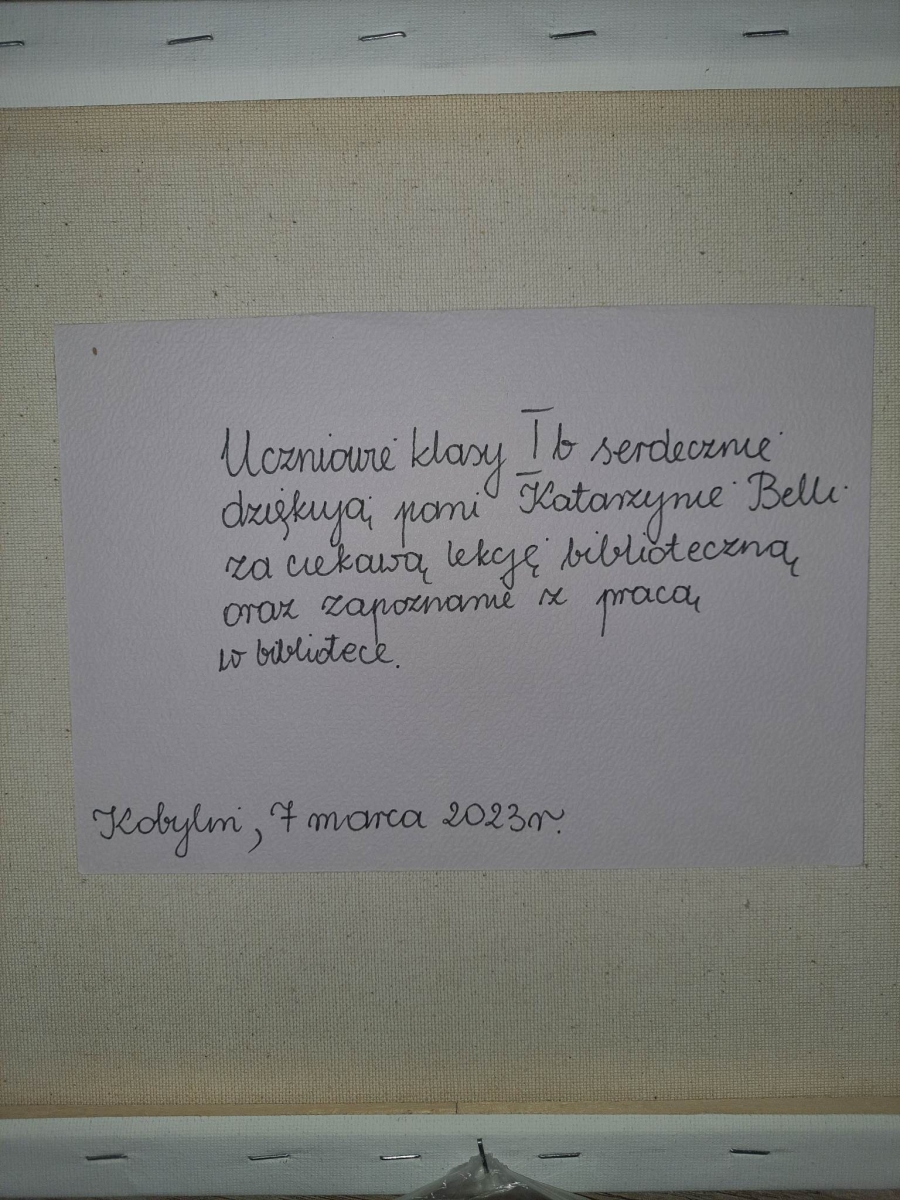 Uczniowie klasy I b serdecznie
dziękują pani Katarzynie Belli
za ciekawą lekcję biblioteczną
oraz zapoznanie z pracą
w bibliotece.
Kobylin, 7 marca 2023r.